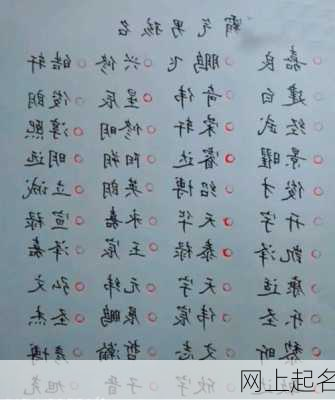 霸气男孩名
嘉良 鹏飞 兴修 皓轩
建白 奇伟 星辰 俊朗
经武 荣轩 修明 淳熙
景曜 睿达 阳朔 明远
俊才 绍博 英朗 立诚
开宇 天华 永嘉 宣禄
凯泽 泰禄 玉宸 泽嘉
康适 天宇 元纬 弘文
乐圣 伟宸 鹏晨 圣杰
黎昕 文志 哲瀚 彦博
欣宇 子晋 旭尧
网上起名